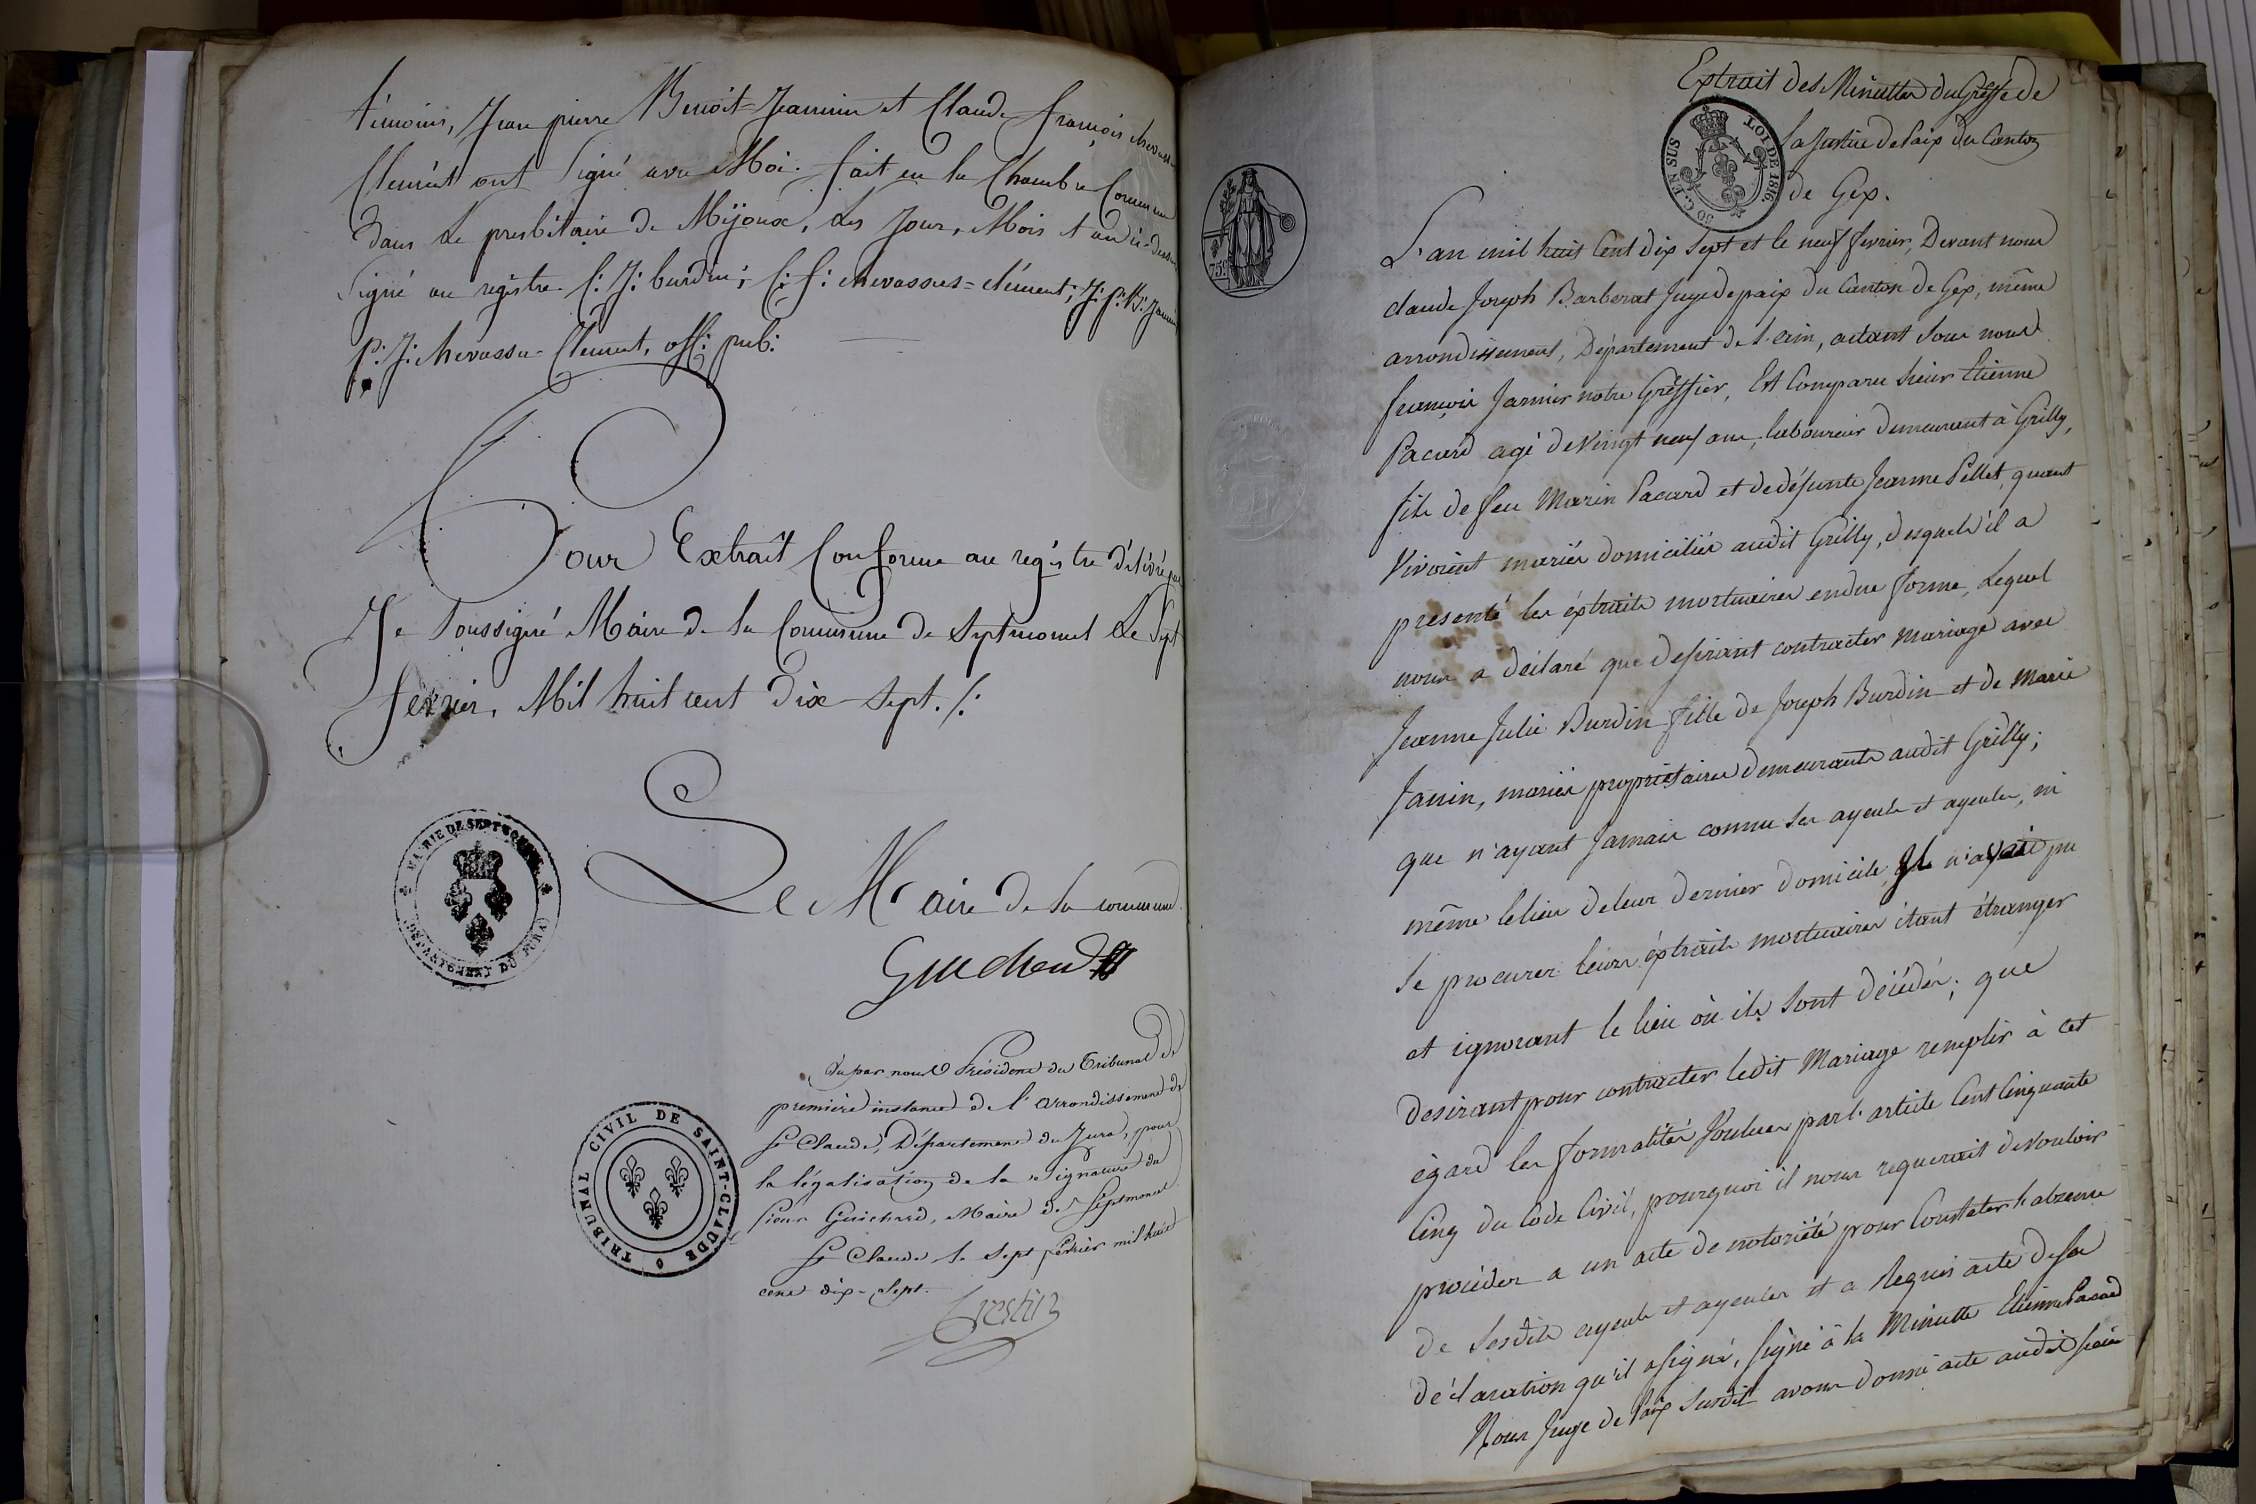 témoins, Jean pierre Benoit-Jeannin et Claude françois chevassu
Clement ont signé avec Moi. fait en la Chambre Commune
dans le presbitaire de Mijoux, les Jour, Mois et an ci-dessus
signé au registre C: J: burdin; C: f: chevassus=clément; J: P: Bt: Jannin
P: J: chevassu-Clement, off: pub:
Pour Extrait Conforme au registre délivré par
Je Soussigné Maire de la Commune de Septmoncel Le Sept
fevrier, Mil huit cent dix-sept ./.
Le Maire de la commune
Guichard
MAIRIE DE SEPTMONCEL
DEPARTEMENT DU JURA
Vu par nous Président du Tribunal de
première instance de l'arrondissement de
St Claude, Département du Jura, pour
la légalisation de la signature du
sieur Guichard, Maire de Septmoncel
St Claude le sept février mil huit
cent dix-sept.
TRIBUNAL CIVIL DE SAINT-CLAUDE
75c
Extrait des Minuttes du Greffe de
la Justice de Paix du Canton
de Gex.
LOI DE 1816.
50 C. EN SUS
L'an mil huit Cent dix Sept et le neuf fevrier, Devant nous
claude Joseph Barberat Juge de paix du Canton de Gex, même
arrondissement, Département de l'ain, aidant sous nous
françois Jarnier notre Greffier, Est Comparu Sieur Etienne
Pacard agé de vingt neuf ans, laboureur demeurant à Grilly,
fils de feu Marin Pacard et de défunte Jeanne Pellet, quant
Vivoient mariés domiciliés audit Grilly, desquels il a
presenté les éxtraits mortuaires en due forme, Lequel
nous a déclaré que desirant contracter mariage avec
Jeanne Julie Burdin fille de Joseph Burdin et de Marie
Janin, mariés propriétaires demeurants audit Grilly;
que n'ayant Jamais connu ses ayeuls et ayeules, ni
même le lieu de leur dernier domicile Il n'avait pu
se procurer leurs éxtraits mortuaires étant étranger
et ignorant le lieu où ils sont décédés; que
desirant pour contracter ledit Mariage remplir à cet
égard les formalités Voulues par l'article Cent Cinquante
Cinq du Code Civil, pourquoi il nous requerait de vouloir
procéder a un acte de notoriété pour Constater l'absence
de Sesdits ayeuls et ayeules et a Requis acte de sa
déclaration qu'il a signé, signé à la Minutte Etienne Pacard
Nous Juge de Paix Susdit avons donné acte audit sieur